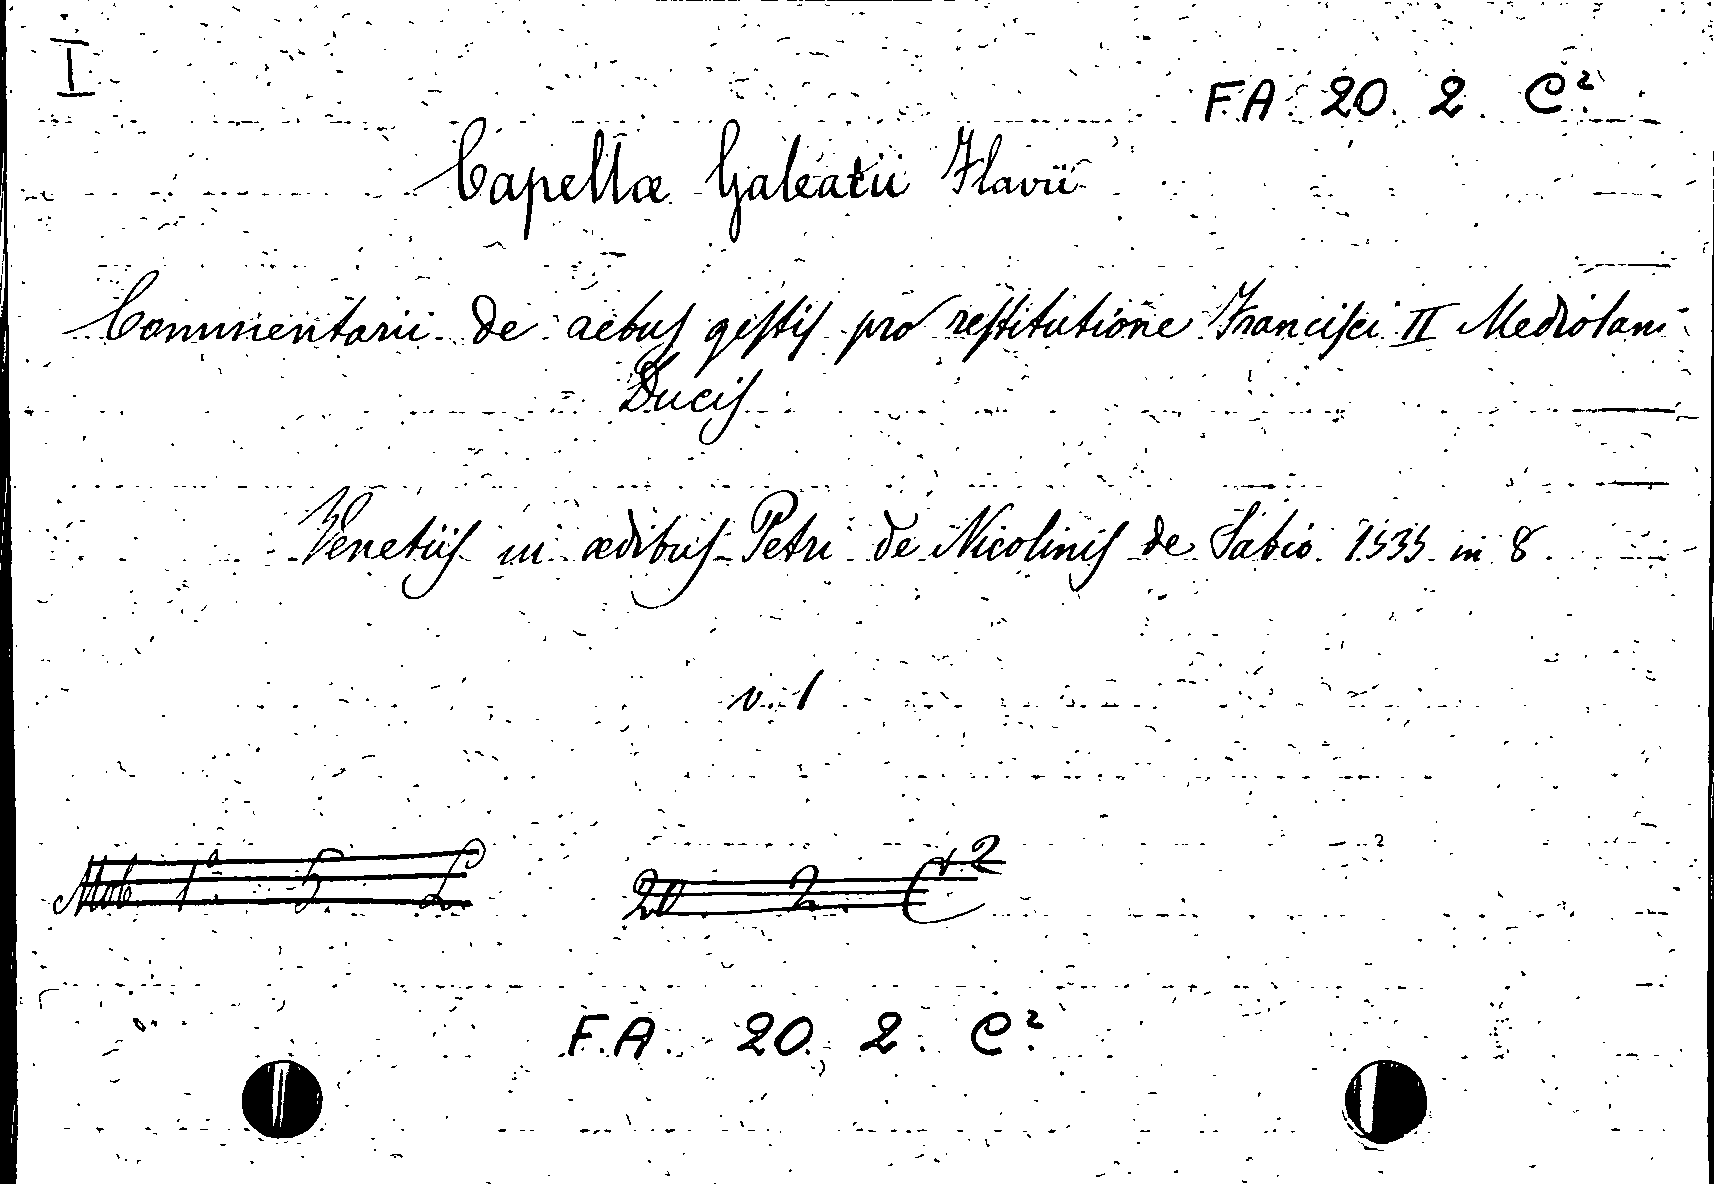 I
F.A. 20. 2. C².
Capellæ Galeatii Flavii
Commentarii de aebus gestis pro restitutione Francisci II Mediolani
Ducis
Venetiis in ædibus Petri de Nicolinis de Sabio 1535 in 8.
v. 1
Mob. 1ª 5. L.
20. 2. C 2
F.A. 20. 2. C².